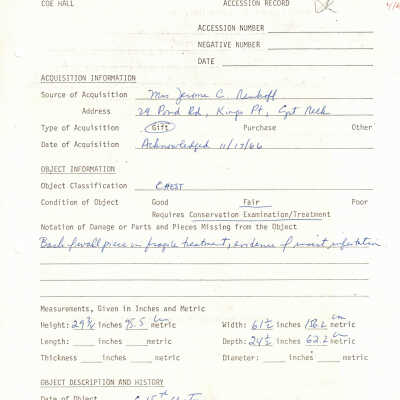 COE HALL ACCESSION RECORD
ACCESSION NUMBER
NEGATIVE NUMBER
DATE
ACQUISITION INFORMATION
Source of Acquisition Mrs Jerome C. Neuhoff
Address 29 Pond Rd, Kings Pt, Grt Neck
Type of Acquisition Gift Purchase Other
Date of Acquisition Acknowledged 11/17/66
OBJECT INFORMATION
Object Classification CHEST
Condition of Object Good Fair Poor
Requires Conservation Examination/Treatment
Notation of Damage or Parts and Pieces Missing from the Object
Back & wall piece in fragile treatment, evidence of insect infestation
Measurements, Given in Inches and Metric
Height: 29¾ inches 75.5 cm metric Width: 61½ inches 156.2 cm metric
Length: inches metric Depth: 24½ inches 62.2 cm metric
Thickness inches metric Diameter: inches metric
OBJECT DESCRIPTION AND HISTORY
Date of Object